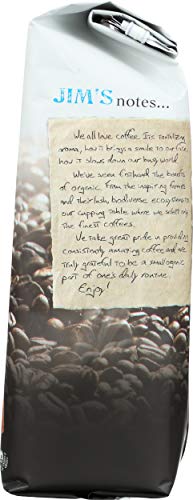 JIM'S notes...
We all love coffee. Its tantalizing
aroma, how it brings a smile to our face,
how it slows down our busy world.
We've seen firsthand the benefits
of organic. From the inspiring farms
and their lush, biodiverse ecosystems to
our cupping tables where we select only
the finest coffees.
We take great pride in providing
consistently amazing coffee and we're
truly grateful to be a small organic
part of one's daily routine.
Enjoy!